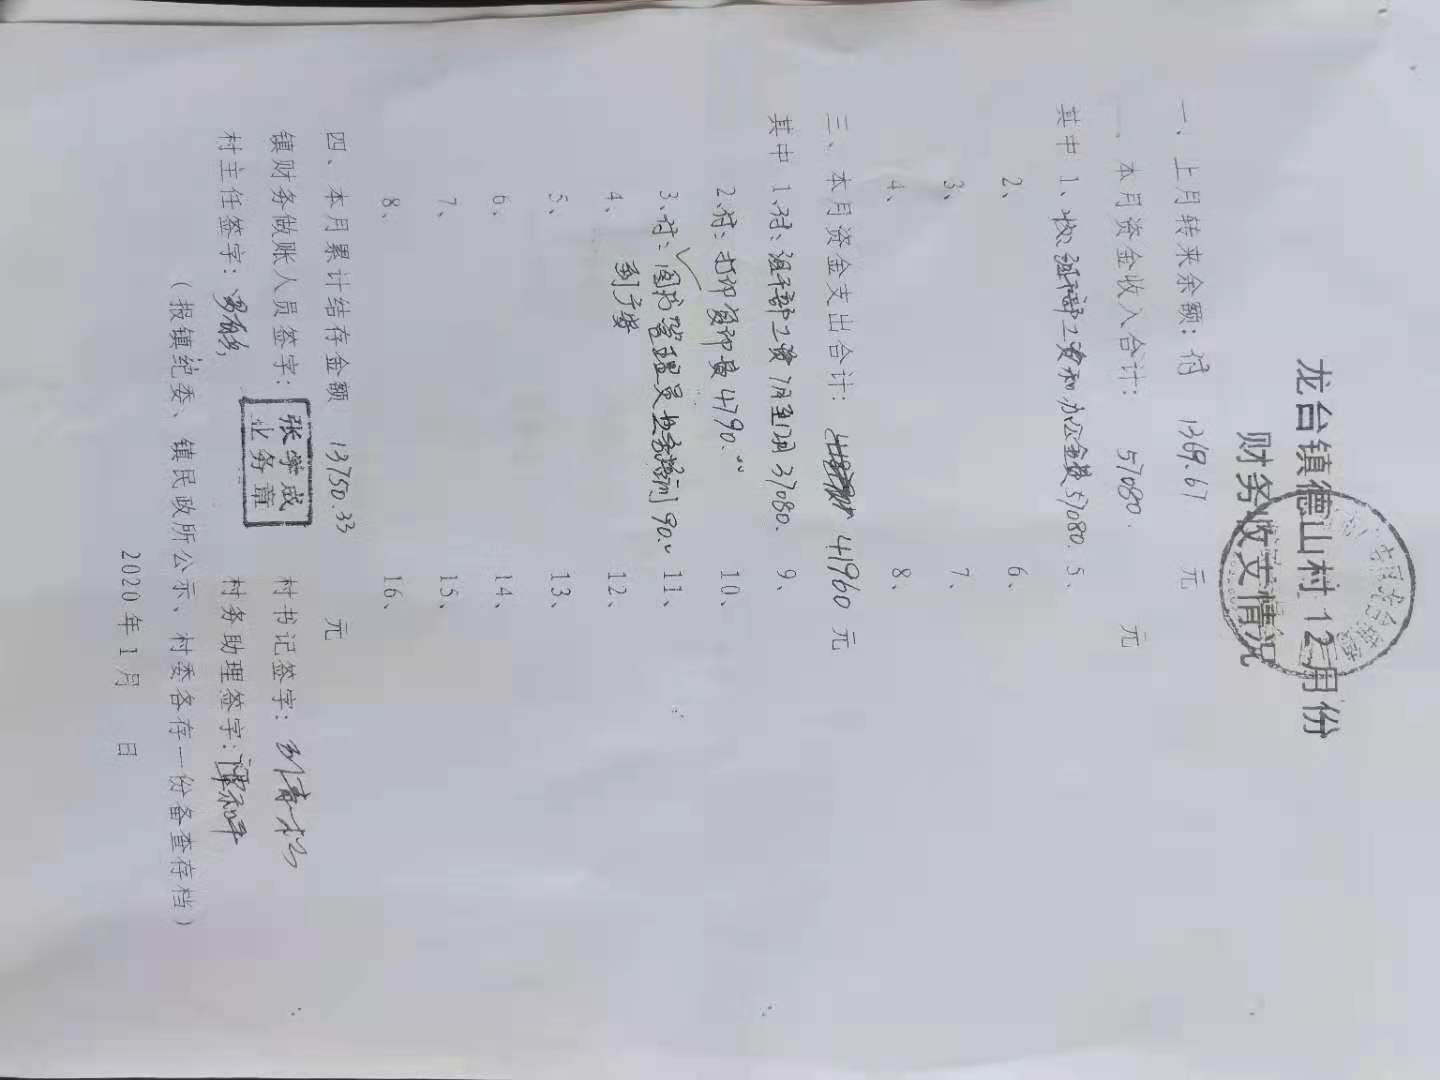 龙台镇德山村12月份
财务收支情况
一、上月转来余额：付 1369.67 元
一、本月资金收入合计： 57080. 元
其中 1、收 工资和办公金费57080. 5、
2、 6、
3、 7、
4、 8、
三、本月资金支出合计： 41960 元
其中 1、付：组干部工资1月至12月37080. 9、
2、付：打印复印费4790. 10、
3、付：图书管理员培训 90. 11、
4、 到户 12、
5、 13、
6、 14、
7、 15、
8、 16、
四、本月累计结存金额 13750.33 元
镇财务做账人员签字：张学成 业务章 村书记签字：
村主任签字： 村务助理签字：
（报镇纪委、镇民政所公示、村委各存一份备查存档）
2020年1月 日